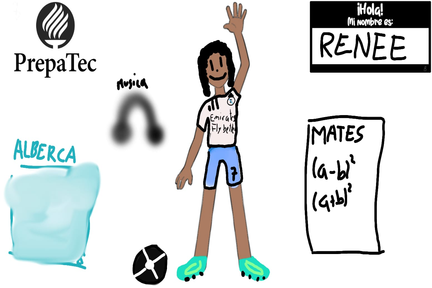 PrepaTec
¡Hola!
Mi nombre es:
RENEE
Musica
Emirates
Fly better
7
ALBERCA
MATES
(a-b)²
(a+b)²